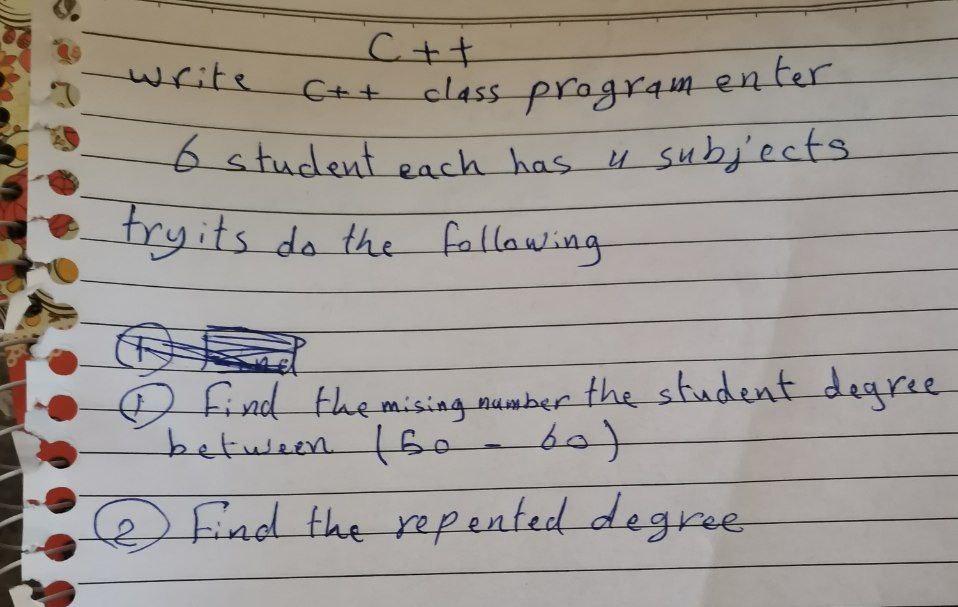 C++
write C++ class program enter
6 student each has 4 subjects
try its do the following
① Find the mising number the student degree
between (50 - 60)
② Find the repented degree